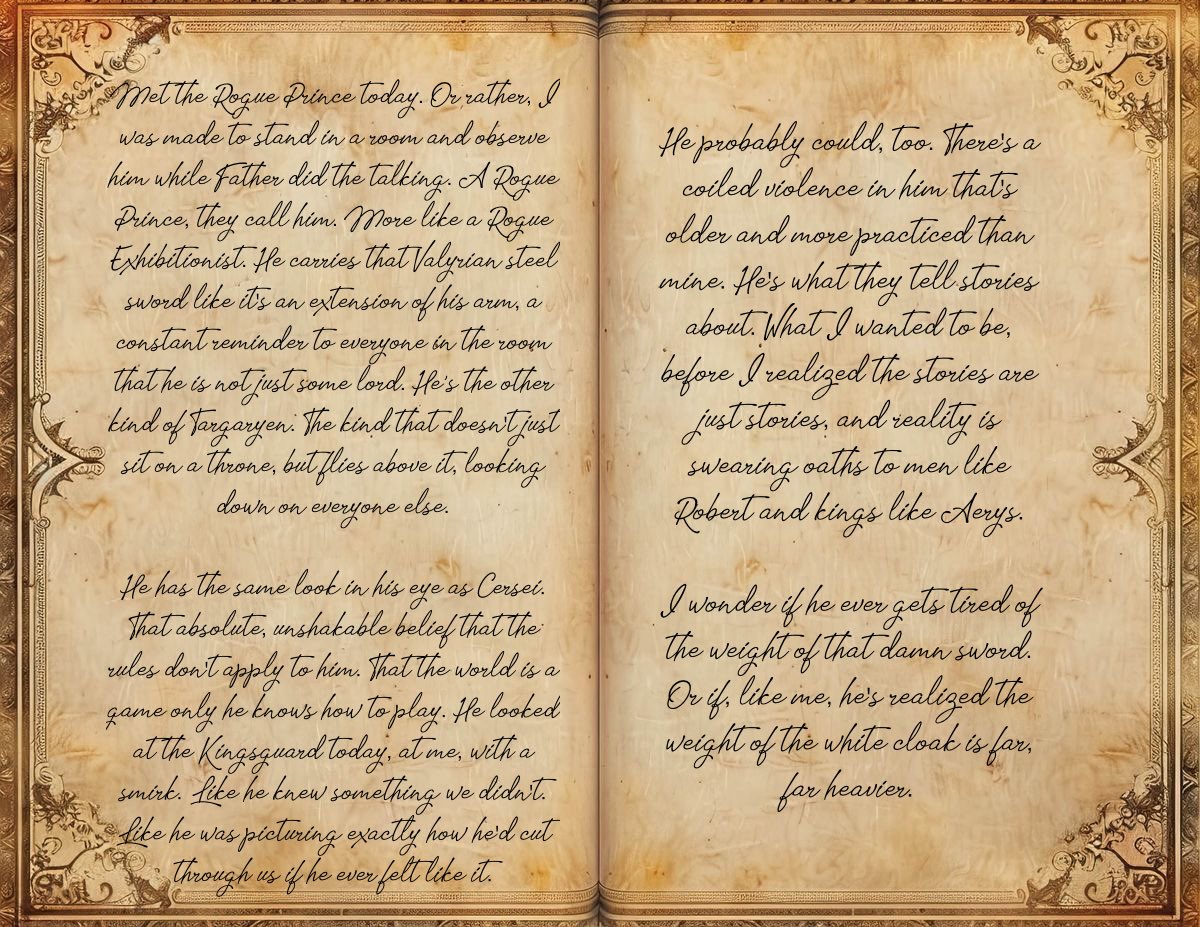 Met the Rogue Prince today. Or rather, I
was made to stand in a room and observe
him while Father did the talking. A Rogue
Prince, they call him. More like a Rogue
Exhibitionist. He carries that Valyrian steel
sword like it's an extension of his arm, a
constant reminder to everyone in the room
that he is not just some lord. He's the other
kind of Targaryen. The kind that doesn't just
sit on a throne, but flies above it, looking
down on everyone else.
He has the same look in his eye as Cersei.
That absolute, unshakable belief that the
rules don't apply to him. That the world is a
game only he knows how to play. He looked
at the Kingsguard today, at me, with a
smirk. Like he knew something we didn't.
Like he was picturing exactly how he'd cut
through us if he ever felt like it.
He probably could, too. There's a
coiled violence in him that's
older and more practiced than
mine. He's what they tell stories
about. What I wanted to be,
before I realized the stories are
just stories, and reality is
swearing oaths to men like
Robert and kings like Aerys.
I wonder if he ever gets tired of
the weight of that damn sword.
Or if, like me, he's realized the
weight of the white cloak is far,
far heavier.